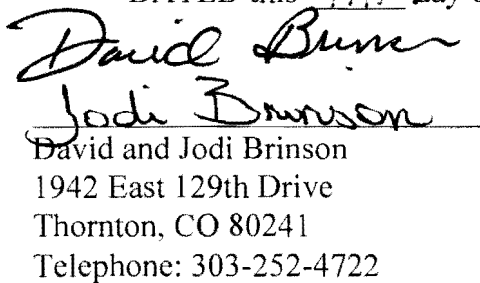 DATED this day
David Brinson
Jodi Brinson
David and Jodi Brinson
1942 East 129th Drive
Thornton, CO 80241
Telephone: 303-252-4722